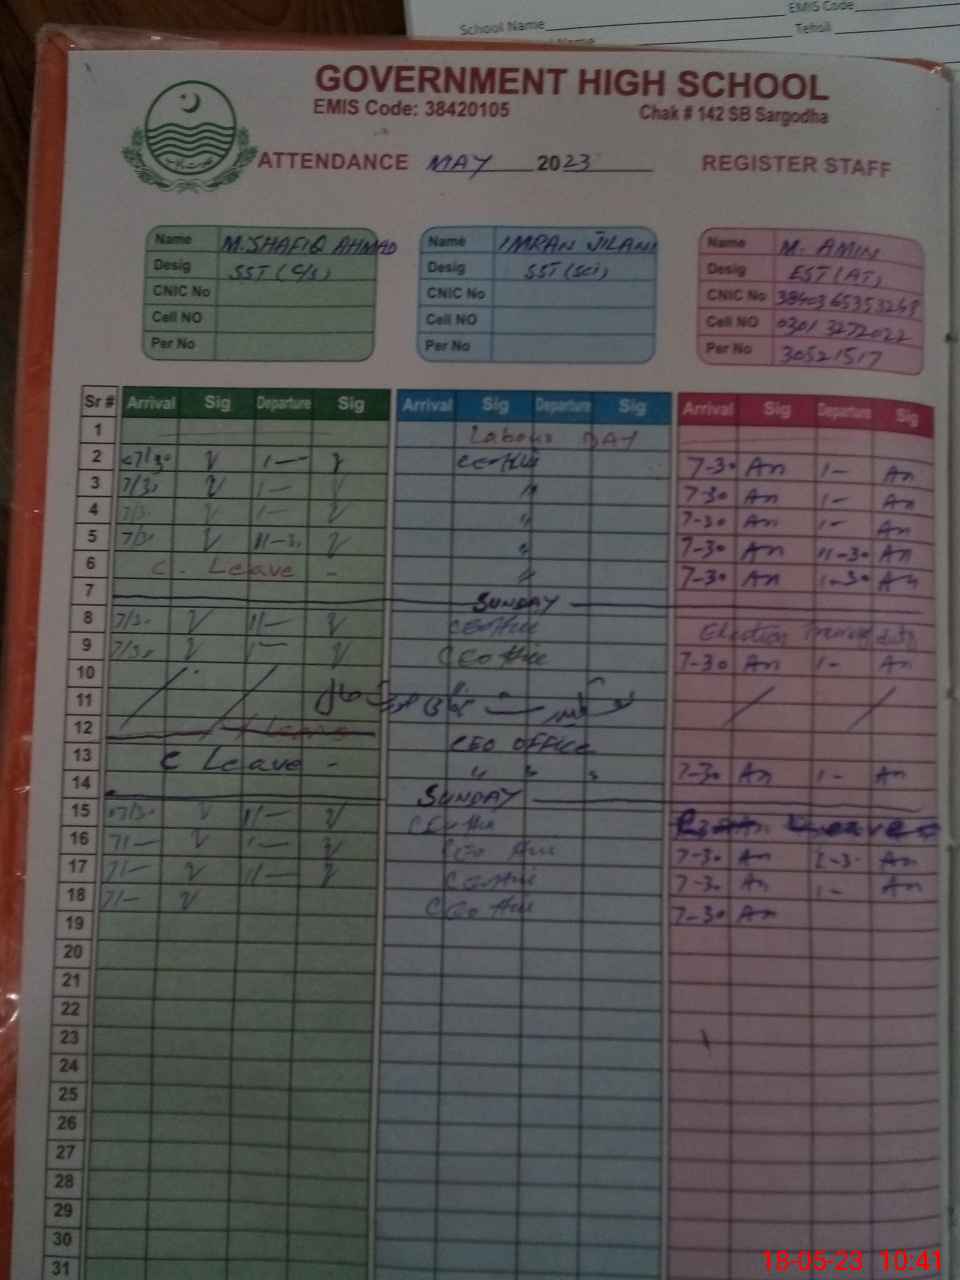 School Name
EMIS Code
Tehsil
GOVERNMENT HIGH SCHOOL
EMIS Code: 38420105 Chak # 142 SB Sargodha
ATTENDANCE MAY 2023 REGISTER STAFF
Name M. SHAFIQ AHMAD Name IMRAN JILANI Name M. AMIN
Desig SST (C/S) Desig SST (Sci) Desig EST (AT)
CNIC No CNIC No CNIC No
Cell NO Cell NO Cell NO 0301 3272022
Per No Per No Per No 30521517
Sr # Arrival Sig Departure Sig Arrival Sig Departure Sig Arrival Sig Departure Sig
1 Labour DAY
2 7/30 1— CEO office 7-30 An 1- An
3 7/30 1— " 7-30 An 1- An
4 7/30 1— " 7-30 An 1- An
5 7/30 11-30 " 7-30 An 11-30 An
6 C. Leave - " 7-30 An 1-30 An
7 SUNDAY
8 7/30 11— CEO office Election Training duty
9 7/30 1— CEO office 7-30 An 1- An
10
11
12 CEO OFFICE
13 C Leave - " " " 7-30 An 1- An
14 SUNDAY
15 7/30 11— CEO office
16 7/— 1— CEO office 7-30 An 1-3. An
17 7/— 11— CEO office 7-30 An 1- An
18 7/— CEO office 7-30 An
19
20
21
22
23
24
25
26
27
28
29
30
31
18-05-23 10:41